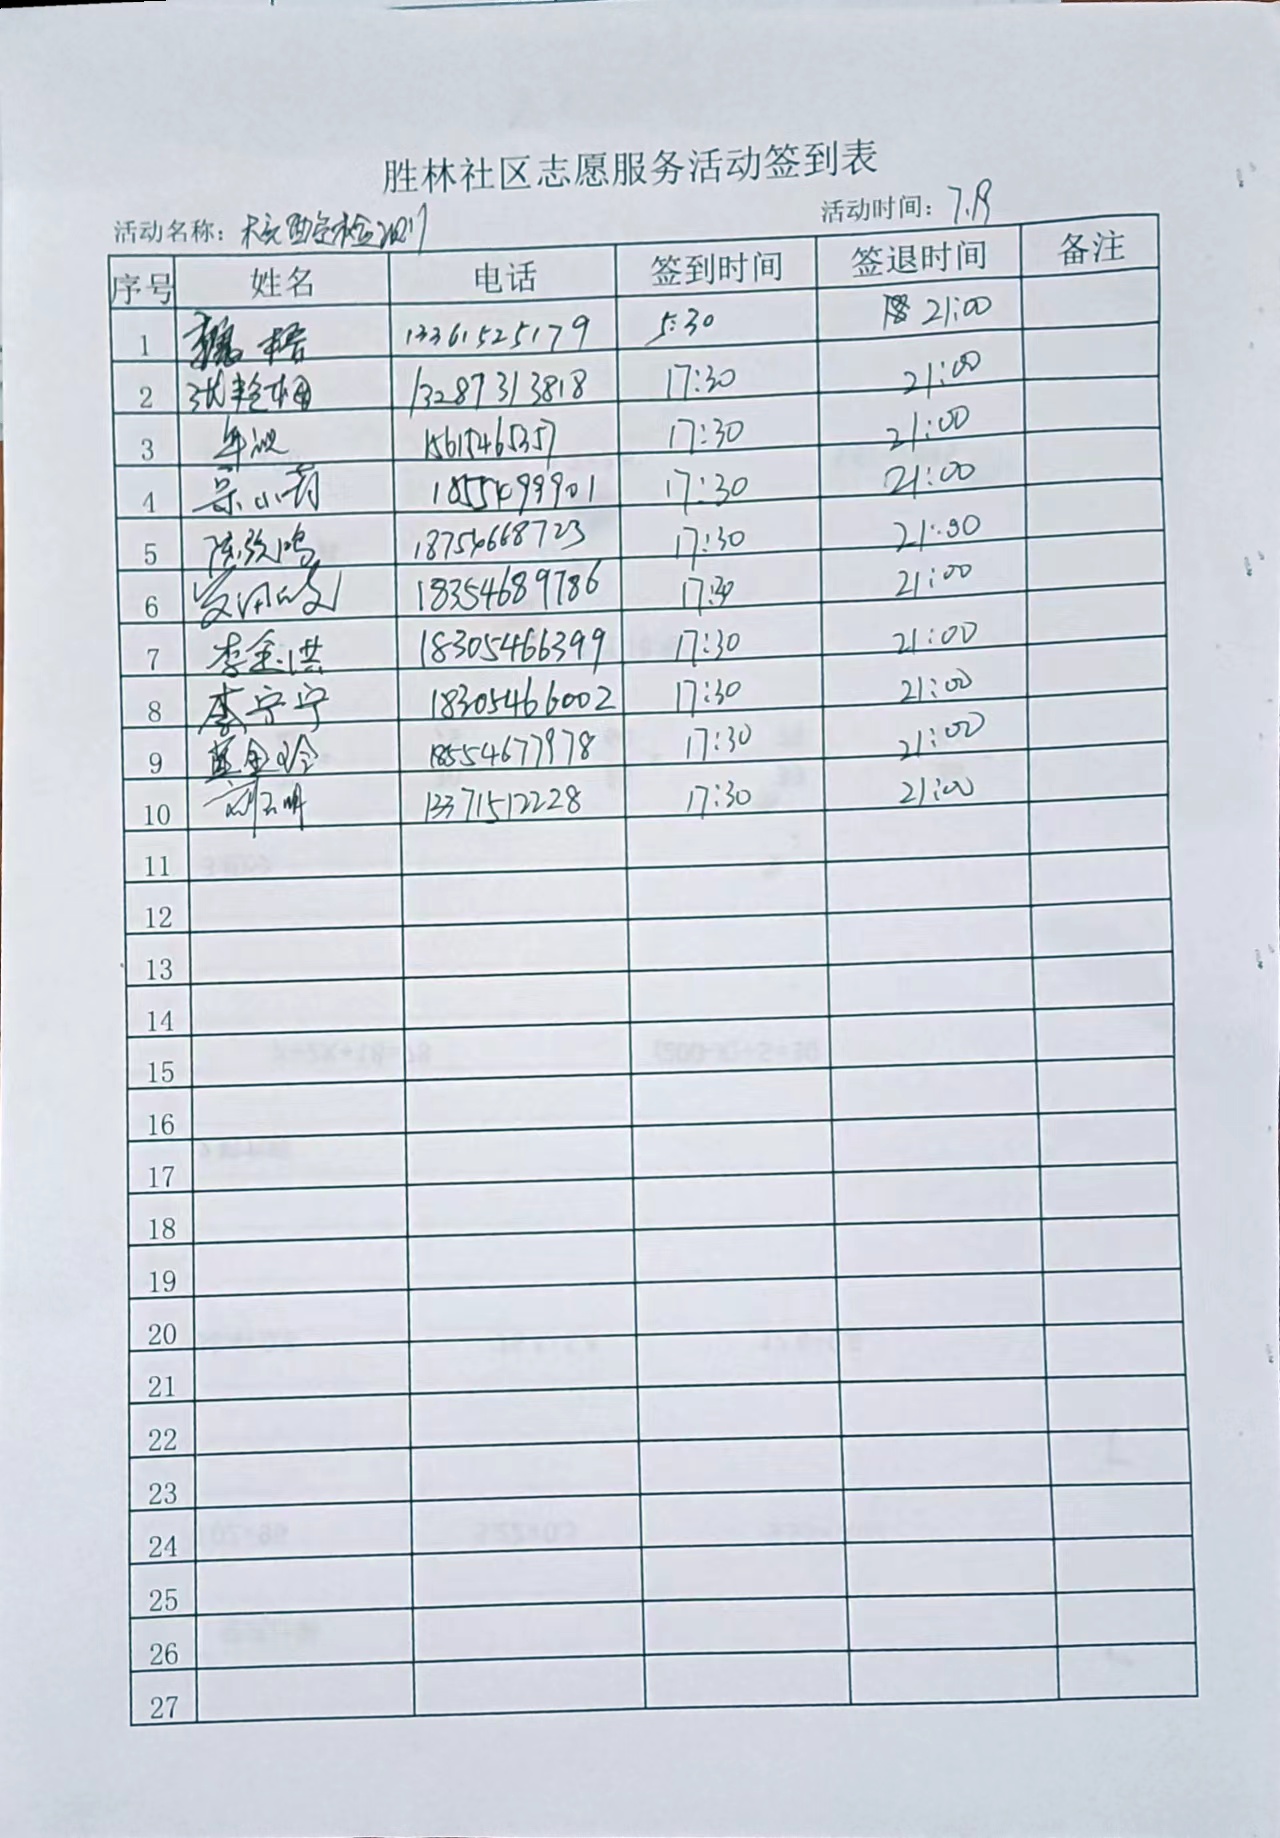 胜林社区志愿服务活动签到表
活动名称：
活动时间：7.8
序号 姓名 电话 签到时间 签退时间 备注
1 13361525179 5:30 21:00
2 13287313818 17:30 21:00
3 17:30 21:00
4 17:30 21:00
5 18754668723 17:30 21:00
6 18354689786 17:30 21:00
7 李金洪 18305466399 17:30 21:00
8 李宁宁 18305466002 17:30 21:00
9 18554677978 17:30 21:00
10 13371512228 17:30 21:00
11
12
13
14
15
16
17
18
19
20
21
22
23
24
25
26
27